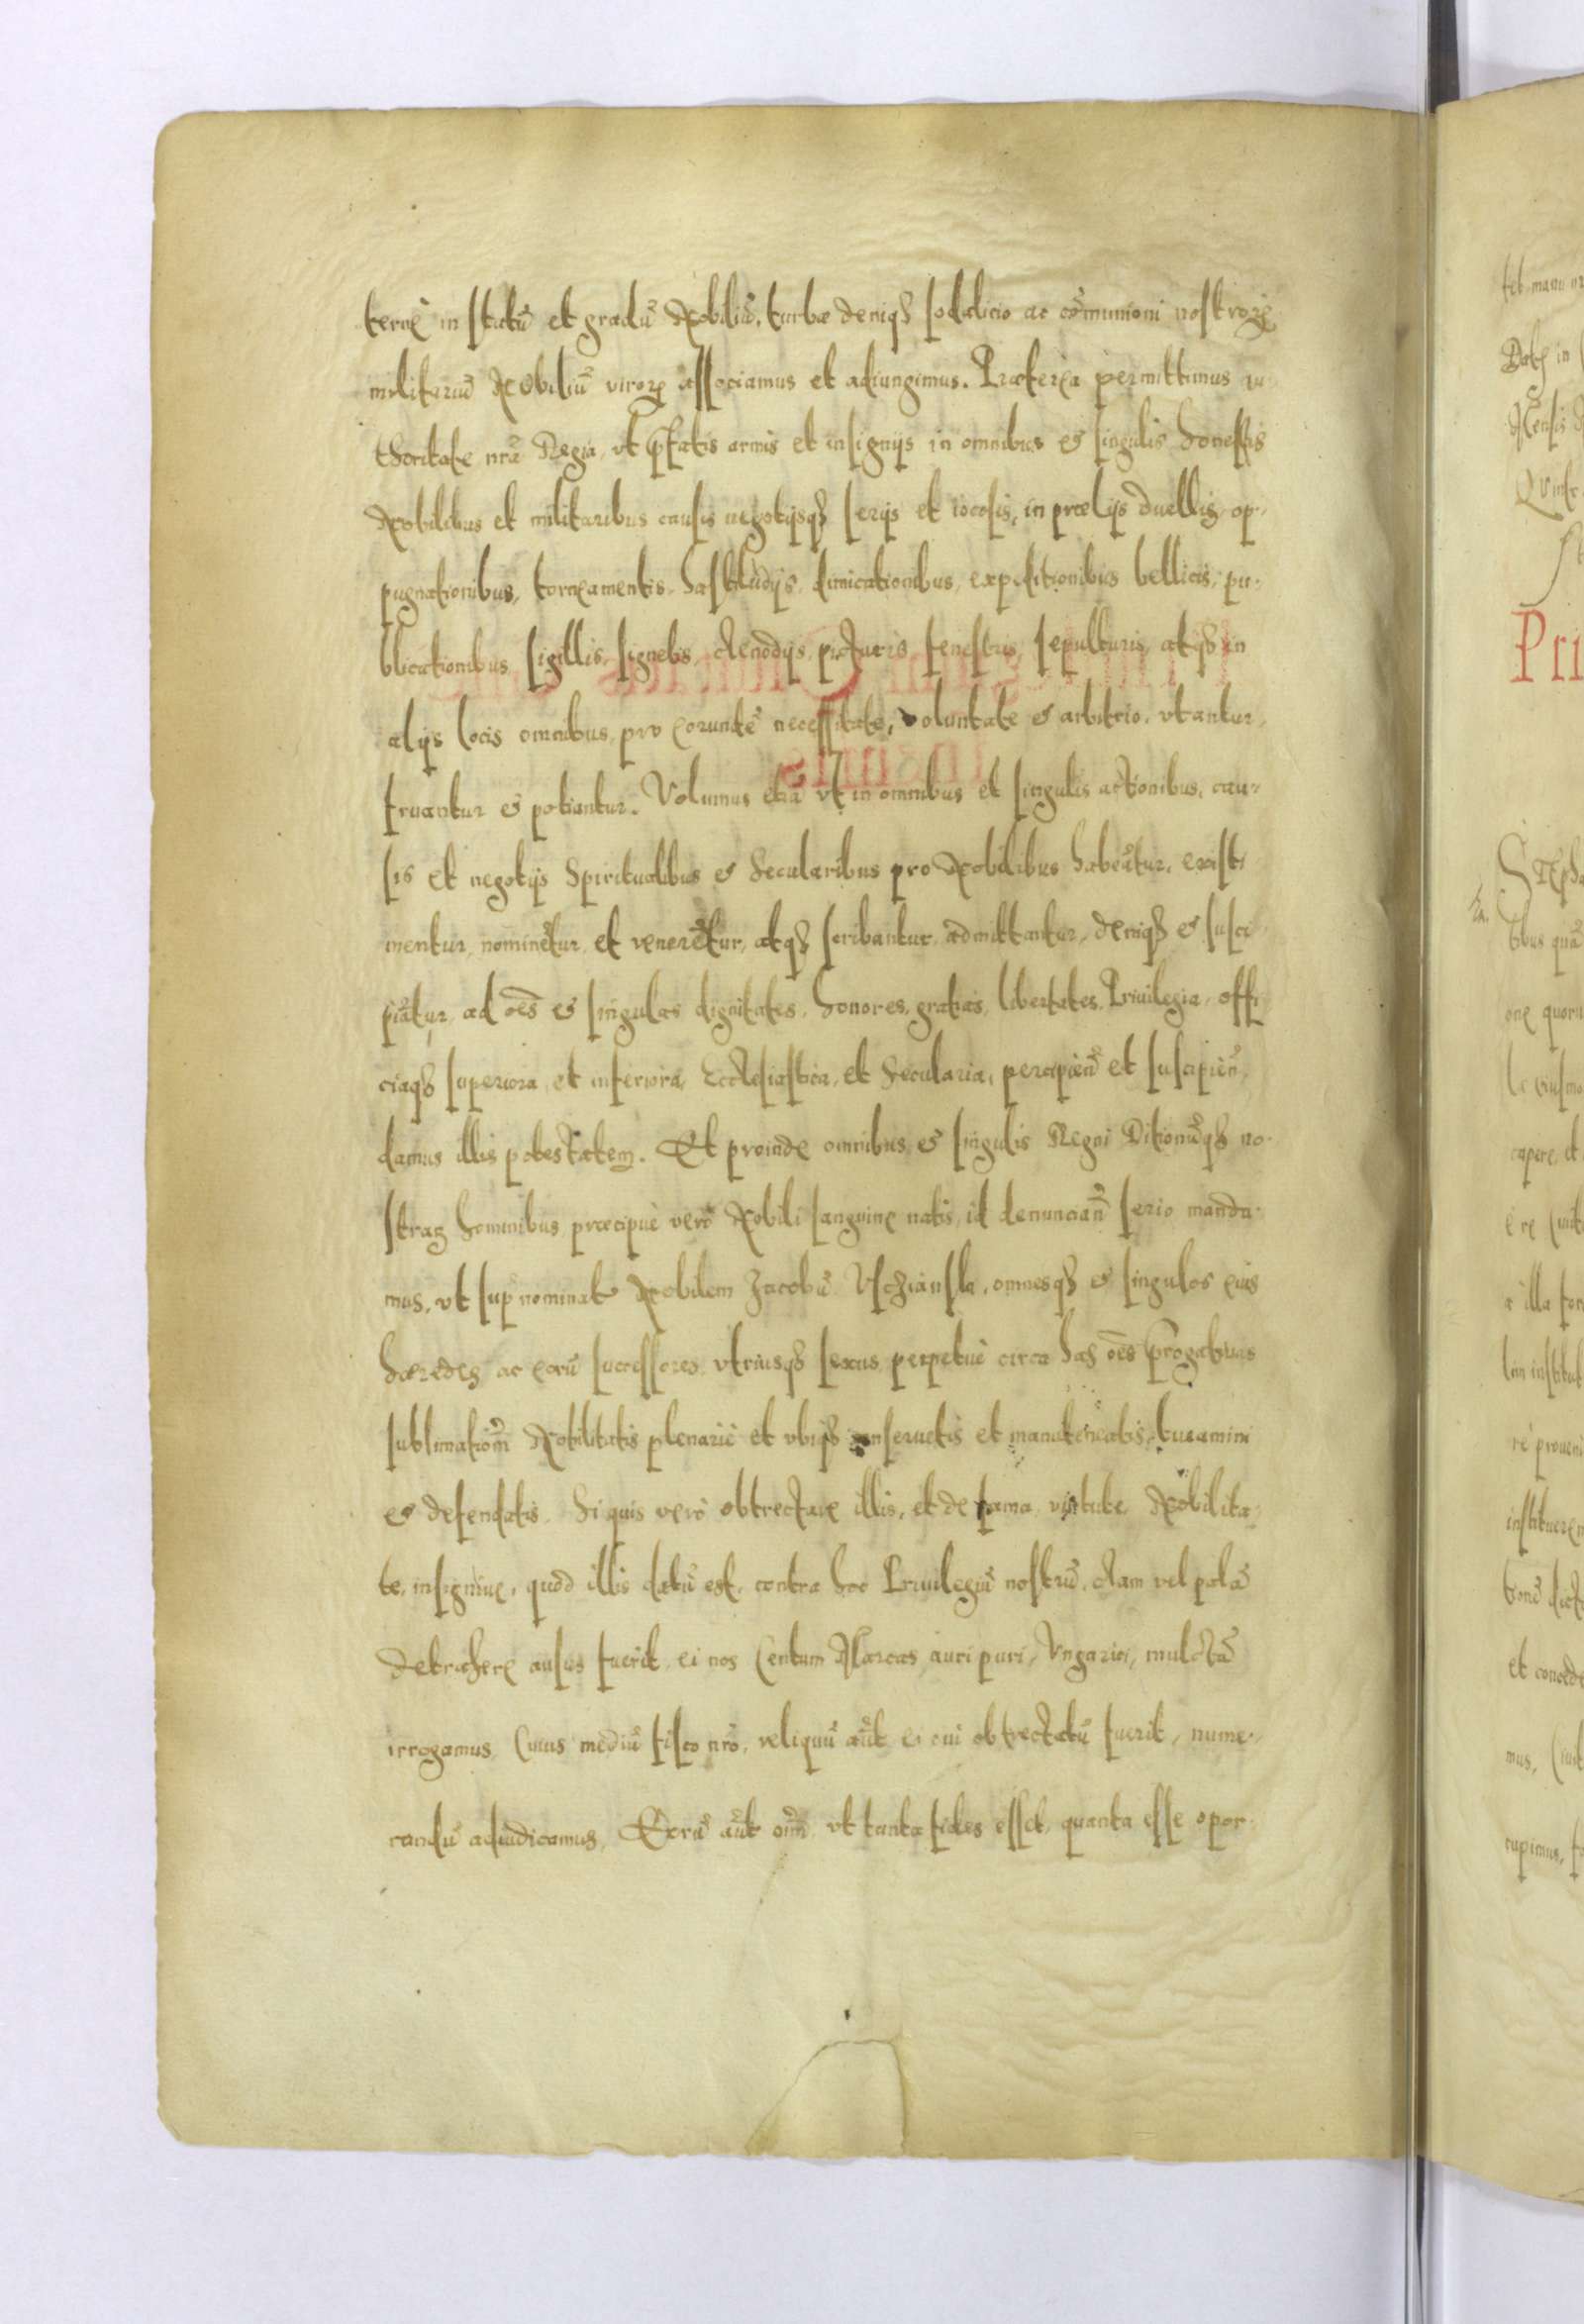 terne in statū et gradū Nobiliū, turbæ deniqȝ sodalicio ac cōmunioni nostrorꝝ
militariū Nobiliū virorꝝ associamus et adiungimus. Præterea permittimus au
thoritate nrā Regia, vt p̄fatis armis et insignijs in omnibus & singulis honestis
Nobilibus et militaribus causis negotijsqȝ serijs et iocosis, in prælijs duellis, op-
pugnationibus, torneamentis, hastiludijs, dimicationibus, expeditionibus bellicis, pu-
blicationibus, sigillis, signetis, clenodijs, picturis fenestris, sepulturis, atqȝ in
alijs locis omnibus, pro eorundē necessitate, voluntate & arbitrio, vtantur,
fruantur & potiantur. Volumus etiā vt in omnibus et singulis actionibus, cau-
sis et negotijs Spiritualibus & Secularibus pro Nobilibus habeātur, existi
mentur, nominētur, et venerētur, atqȝ scribantur, admittantur, deniqȝ & susci
piātur, ad oēs & singulas dignitates, honores, gratias, libertates, Priuilegia, offi
ciaqȝ superiora, et inferiora, Ecclesiastica, et Secularia, percipiēn et suscipiēn,
damus illis potestatem. Et proinde omnibus & singulis Regni Ditionūqȝ no-
straꝝ hominibus, præcipuè verò Nobili sanguine natis, id denunciān serio manda-
mus, vt sup nominat Nobilem Jacobū Vschiansla, omnesqȝ & singulos eius
hæredes, ac eorū successores, vtriusqȝ sexus perpetuè circa has oēs p̄rogatiuas
sublimatiom̄ Nobilitatis plenariè et vbiqȝ conseruetis et manuteneatis, tueamini
& defendatis. Si quis verò obtrectare illis, et de fama, virtute, Nobilita
te, insigniue, quod illis datū est, contra hoc Priuilegiū nostrū, clam vel palā
detrahere ausus fuerit, ei nos Centum Marcas, auri puri, Vngarici, mulctā
irrogamus. Cuius mediū fisco nrō, reliquū aūt ei cui obtrectatū fuerit, nume-
randū adiudicamus. Eorū aūt oīm vt tanta fides esset, quanta esse opor-